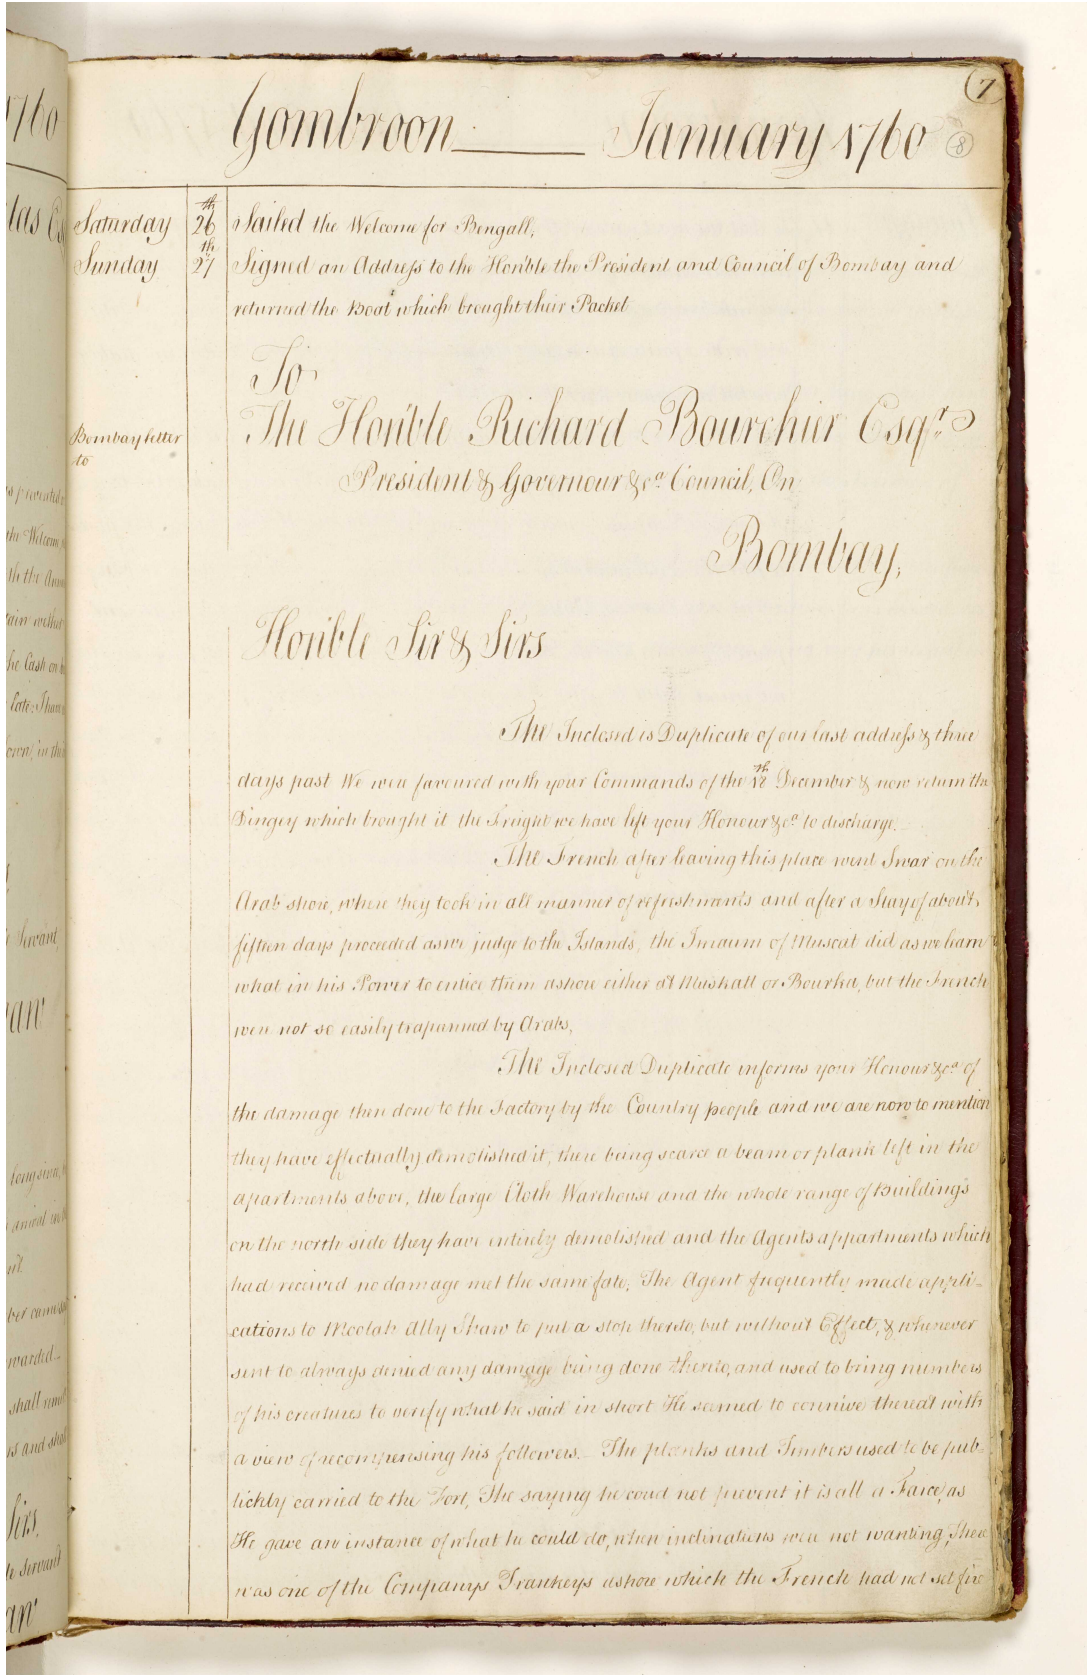 7
Gombroon January 1760
8
Saturday 26th Sailed the Welcome for Bengall,
Sunday 27th Signed an Address to the Hon'ble the President and Council of Bombay and
returned the Boat which brought their Packet
To
Bombay letter to
The Hon'ble Richard Bourchier Esqr.
President & Governour &ca. Council, On
Bombay,
Hon'ble Sir & Sirs
The Inclosed is Duplicate of our last address & three
days past We were favoured with your Commands of the 12th December & now return the
Dingey which brought it the Freight we have left your Honour &ca. to discharge.
The French after leaving this place went Swar on the
Arab shore, where they took in all manner of refreshments and after a Stay of about
fifteen days proceeded as we judge to the Islands, the Imaum of Muscat did as we learn
what in his Power to entice them ashore either at Muskatt or Bourka, but the French
were not so easily trapanned by Arabs,
The Inclosed Duplicate informs your Honour &ca. of
the damage then done to the Factory by the Country people and we are now to mention
they have effectually demolished it, there being scarce a beam or plank left in the
apartments above, the large Cloth Warehouse and the whole range of Buildings
on the north side they have entirely demolished and the Agents appartments which
had received no damage met the same fate, The Agent frequently made appli-
cations to Moolah Ally Shaw to put a stop thereto, but without Effect, & whenever
sent to always denied any damage being done thereto, and used to bring numbers
of his creatures to verify what he said in short He seemed to connive thereat with
a view of recompensing his followers. The planks and Timbers used to be pub-
lickly carried to the Fort, The saying he coud not prevent it is all a Farce, as
He gave an instance of what he could do, when inclinations were not wanting, There
was one of the Companys Trankeys ashore which the French had not set fire